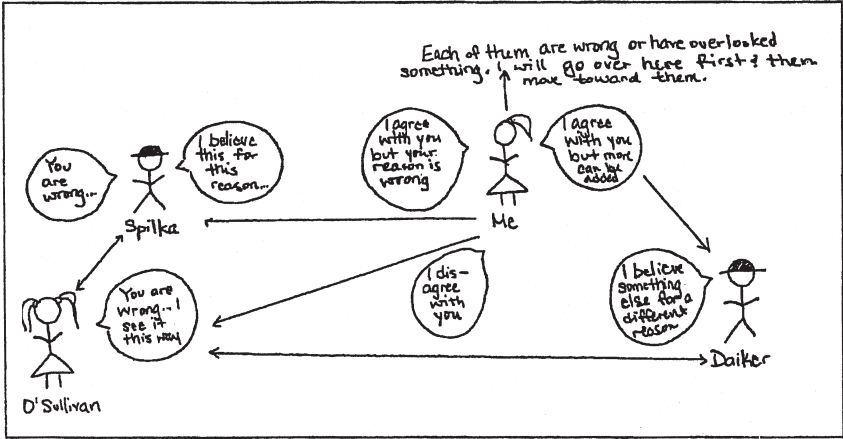 Each of them are wrong or have overlooked
something. I will go over here first & them
move toward them.
You
are
wrong...
I believe
this for
this
reason...
I agree
with you
but your
reason is
wrong
I agree
with you
but more
can be
added
Spilka
Me
I dis-
agree
with
you
You are
wrong... I
see it
this way
I believe
something
else for a
different
reason
O'Sullivan
Daiker